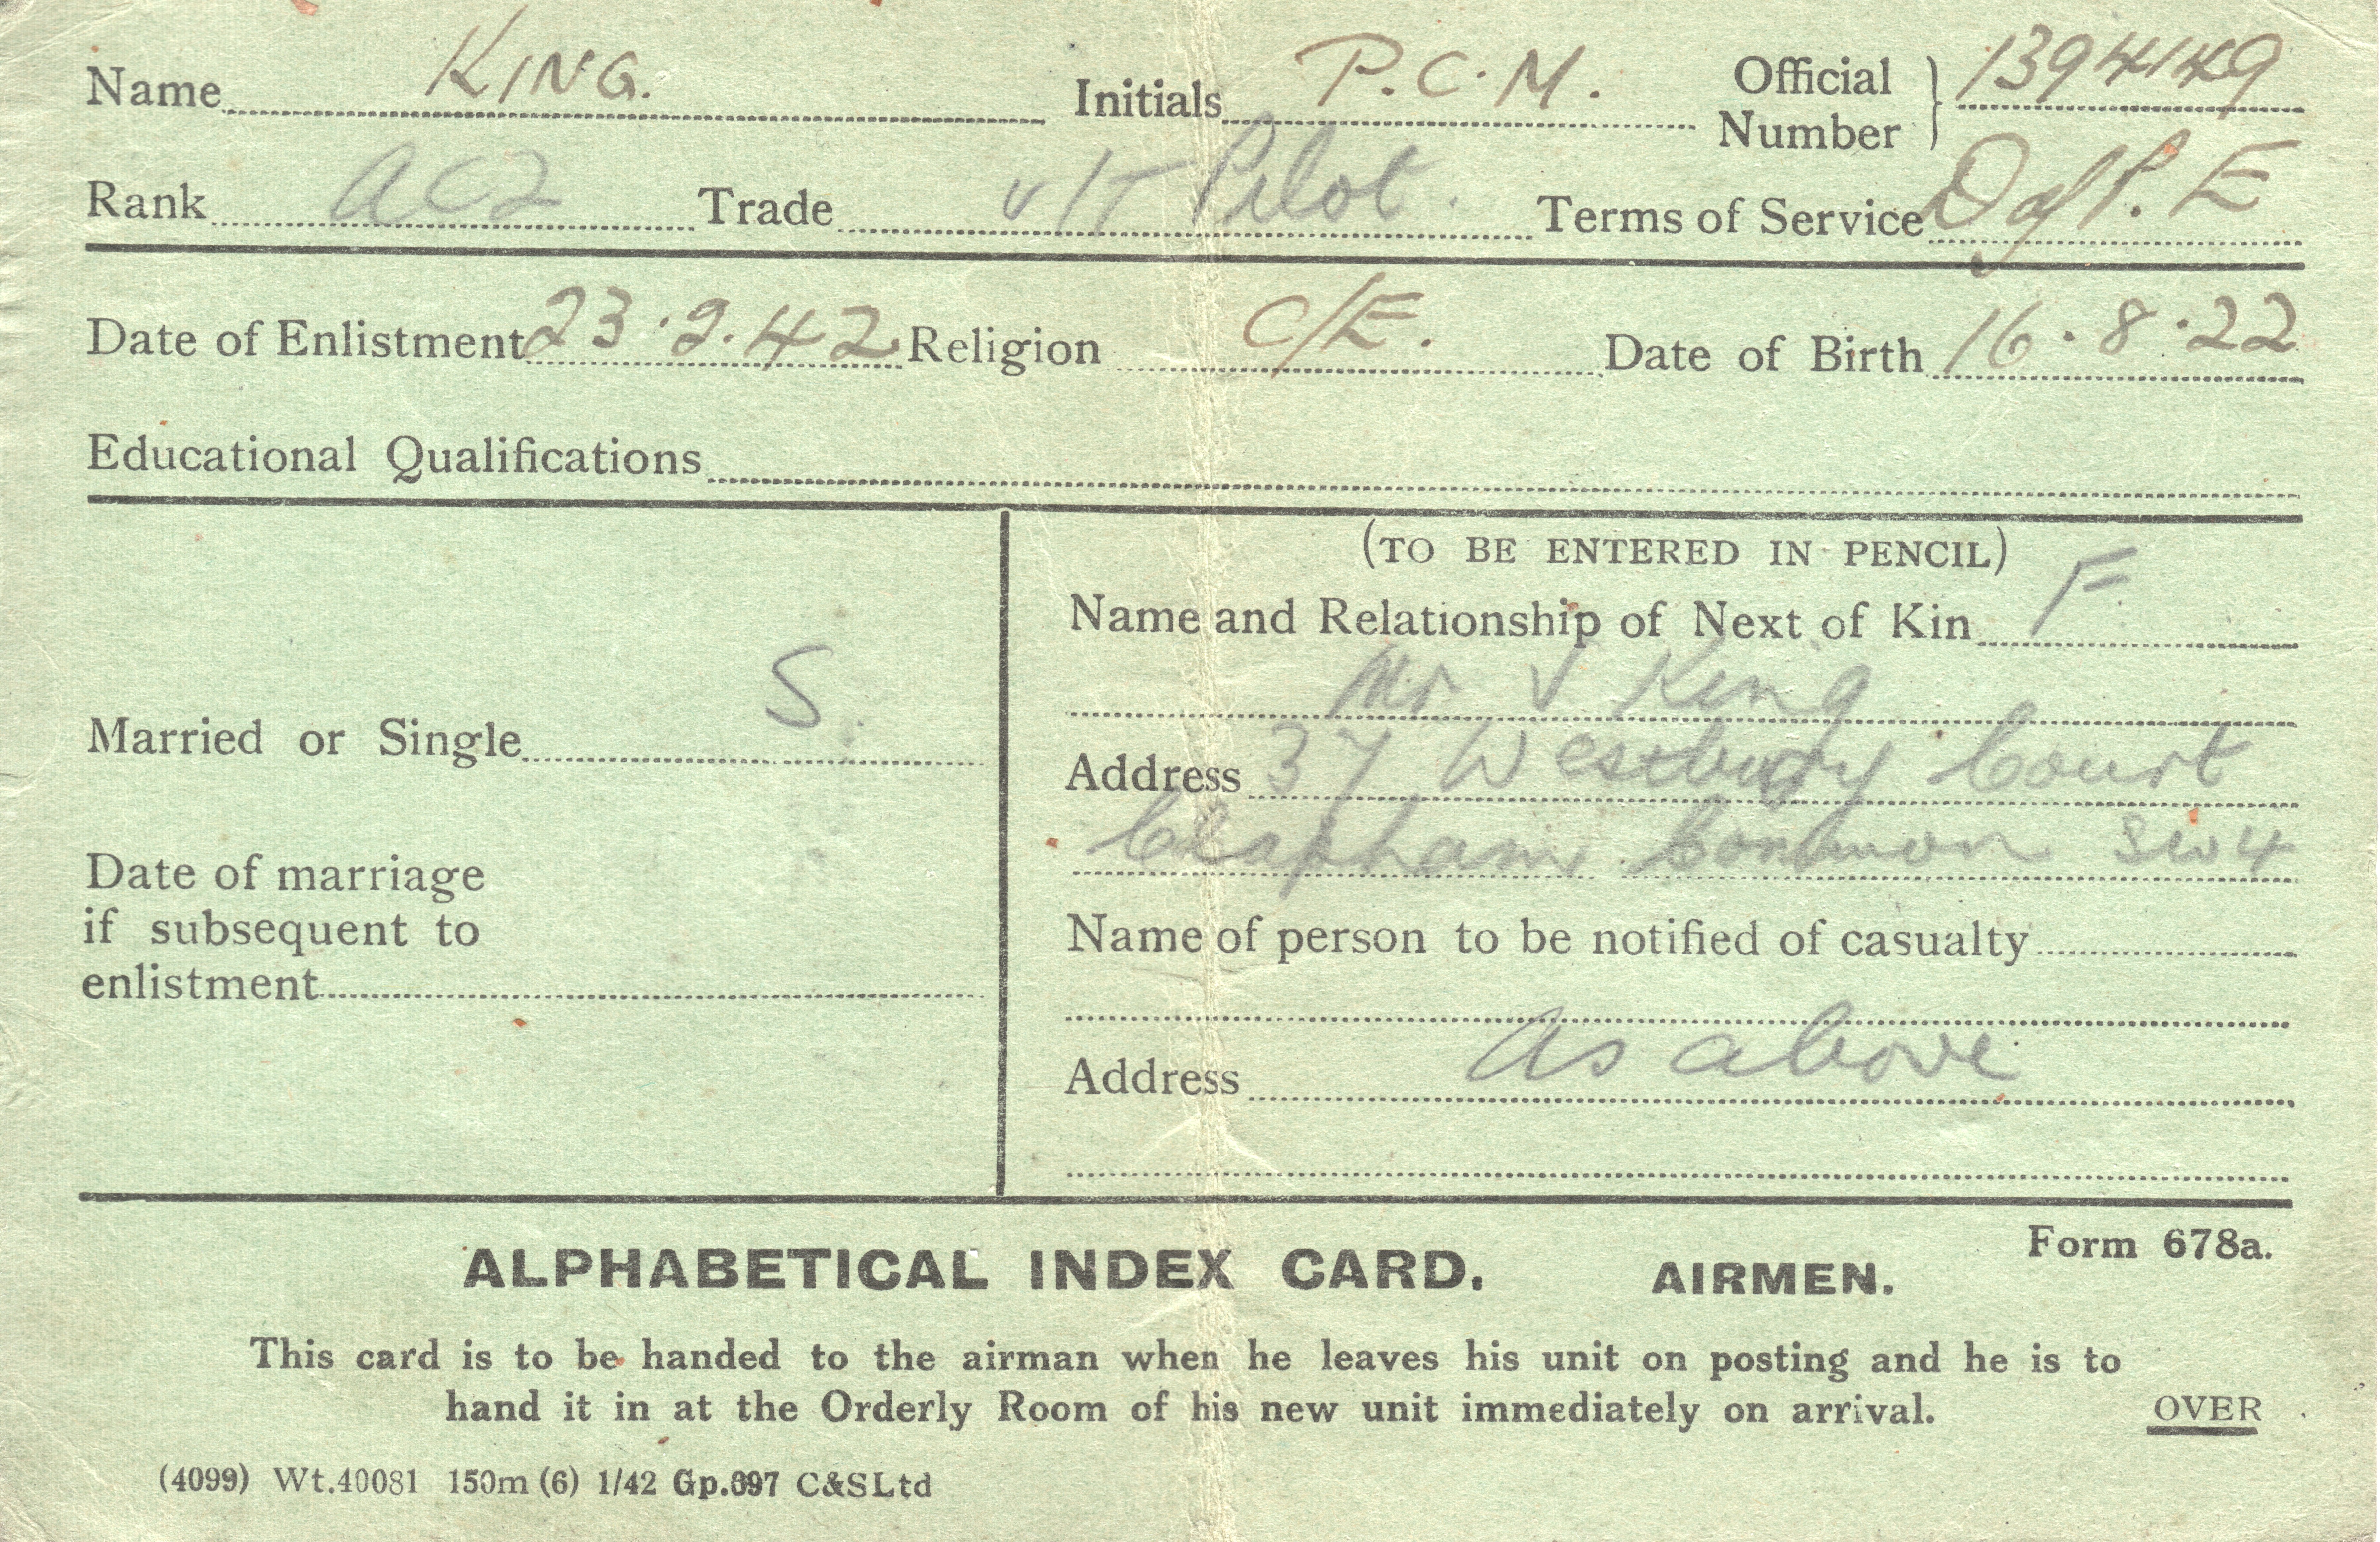 Name KING. Initials P.C.M. Official Number } 1394149
Rank AC2 Trade u/T Pilot. Terms of Service D of P. E
Date of Enlistment 23.2.42 Religion C/E. Date of Birth 16.8.22
Educational Qualifications
(TO BE ENTERED IN PENCIL)
Name and Relationship of Next of Kin F.
Mr V King
Married or Single S.
Address 37 Westbury Court
Clapham Common SW4
Date of marriage
if subsequent to
enlistment
Name of person to be notified of casualty
As above
Address
Form 678a.
ALPHABETICAL INDEX CARD. AIRMEN.
This card is to be handed to the airman when he leaves his unit on posting and he is to
hand it in at the Orderly Room of his new unit immediately on arrival.
OVER
(4099) Wt.40081 150m (6) 1/42 Gp.697 C&SLtd